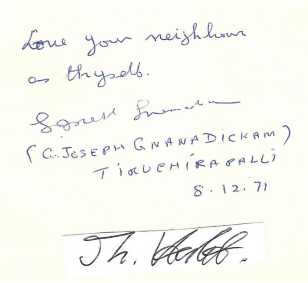 Love your neighbour
as thyself.
(G. JOSEPH GNANADICKAM)
TIRUCHIRAPALLI
8.12.71
Th.